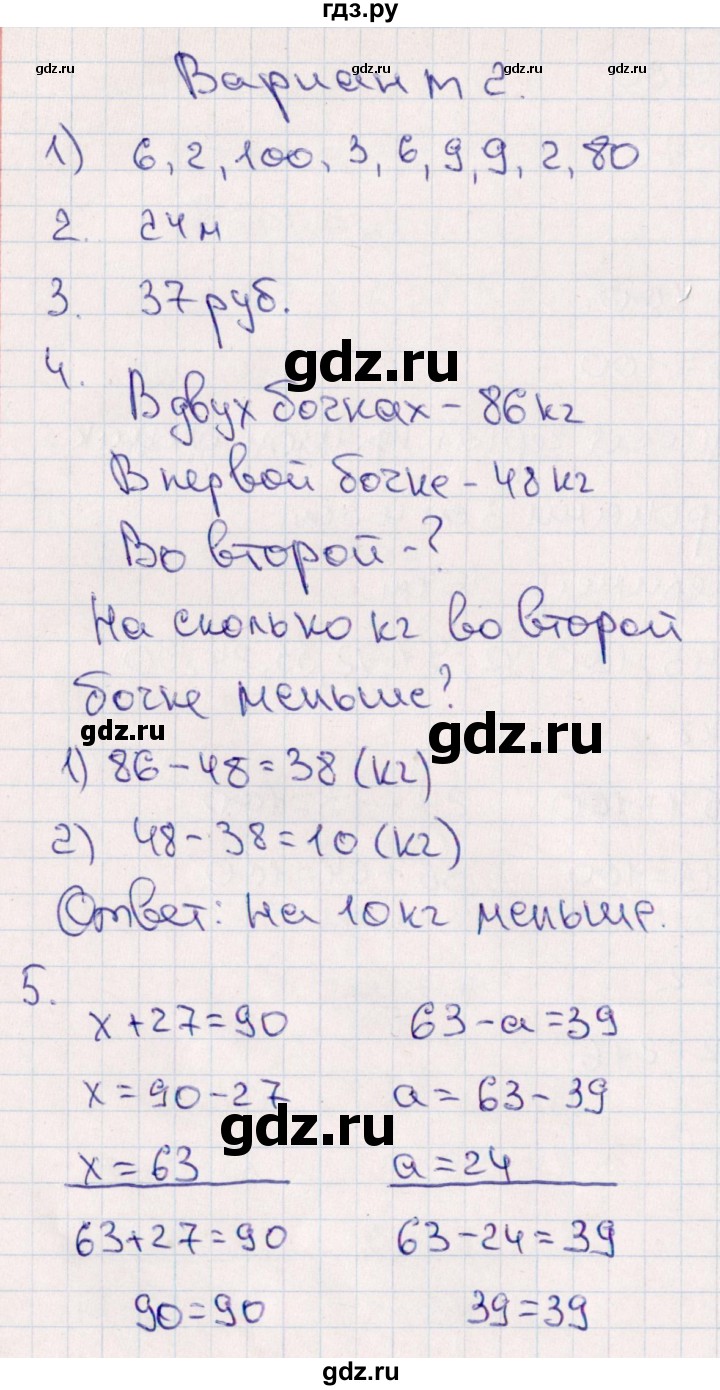 гдз.ру
gdz.ru gdz.ru gdz.ru gdz.ru
Вариант 2.
1) 6, 2, 100, 3, 6, 9, 9, 2, 80
2. 24 м
3. 37 руб.
gdz.ru
4.
В двух бочках - 86 кг
В первой бочке - 48 кг
Во второй - ?
На сколько кг во второй
бочке меньше?
gdz.ru gdz.ru
1) 86 - 48 = 38 (кг)
2) 48 - 38 = 10 (кг)
Ответ: на 10 кг меньше.
5.
x + 27 = 90 63 - a = 39
x = 90 - 27 a = 63 - 39
gdz.ru
x = 63 a = 24
63 + 27 = 90 63 - 24 = 39
90 = 90 39 = 39
gdz.ru